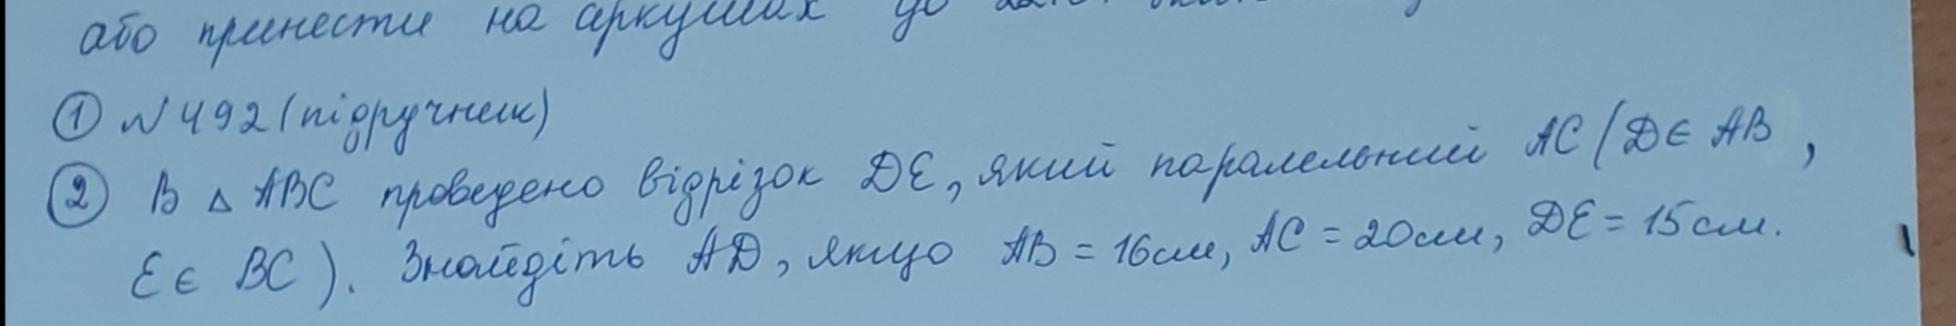 або принести на аркушах до
① №492 (підручник)
② В △ ABC проведено відрізок DE, який паралельний AC (D∈ AB,
E∈ BC). Знайдіть AD, якщо AB = 16см, AC = 20см, DE = 15см.